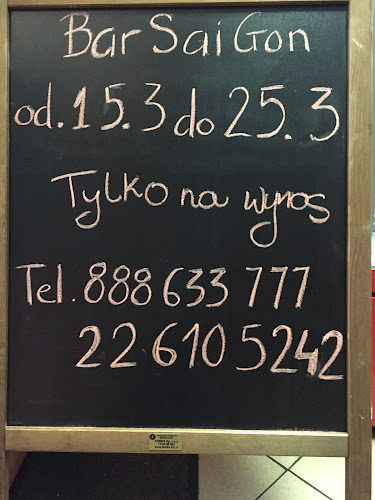 Bar SaiGon
od. 15.3 do 25.3
Tylko na wynos
Tel. 888 633 777
22 610 5242